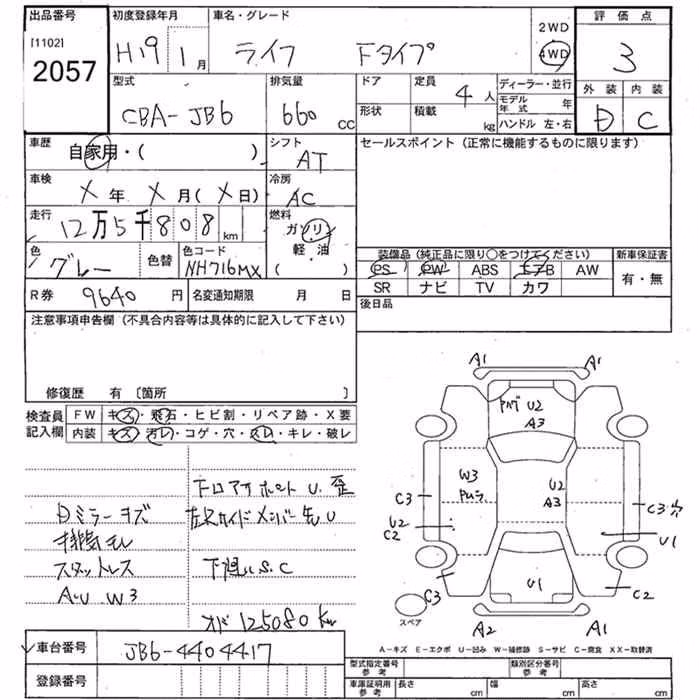 出品番号
[1102]
2057
初度登録年月
H19 1月
車名・グレード
ライフ Fタイプ
2WD
4WD
評価点
3
型式
CBA-JB6
排気量
660 cc
ドア
形状
定員
4人
積載
kg
ディーラー・並行
モデル年式 年
ハンドル 左・右
外装 内装
D C
車歴
自家用・( )
シフト
AT
車検
X年 X月(X日)
冷房
AC
走行
12万5千808km
燃料
ガソリン
軽・油
( )
色
グレー
色替
色コード
NH716MX
R券 9640円
名変通知期限 月 日
セールスポイント(正常に機能するものに限ります)
装備品(純正品に限り○をつけてください)
PS PW ABS エアB AW
SR ナビ TV カワ
新車保証書
有・無
後日品
注意事項申告欄(不具合内容等は具体的に記入して下さい)
修復歴 有 〔箇所 〕
検査員記入欄
FW キズ・飛石・ヒビ割・リペア跡・X要
内装 キズ・汚レ・コゲ・穴・スレ・キレ・破レ
Dミラーキズ
排気モレ
スタットレス
A・U W3
下回りS.C
125080km
A1 A1
U2
A3
W3
U2
A3
C3
U2
C2
C3
U1
C3
U1
C2
A2 A1
スペア
A-キズ E-エクボ U-凹み W-補修跡 S-サビ C-腐食 XX-取替済
車台番号
JB6-4404417
登録番号
型式指定番号参考
類別区分番号参考
車庫証明用参考
長さ cm
幅 cm
高さ cm